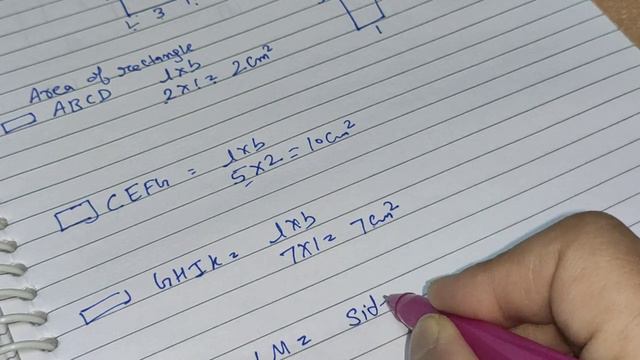 3
1
Area of rectangle
ABCD l×b
2×1= 2cm²
CEFG = l×b
5×2=10cm²
GHIK= l×b
7×1= 7cm²
LM= Sid